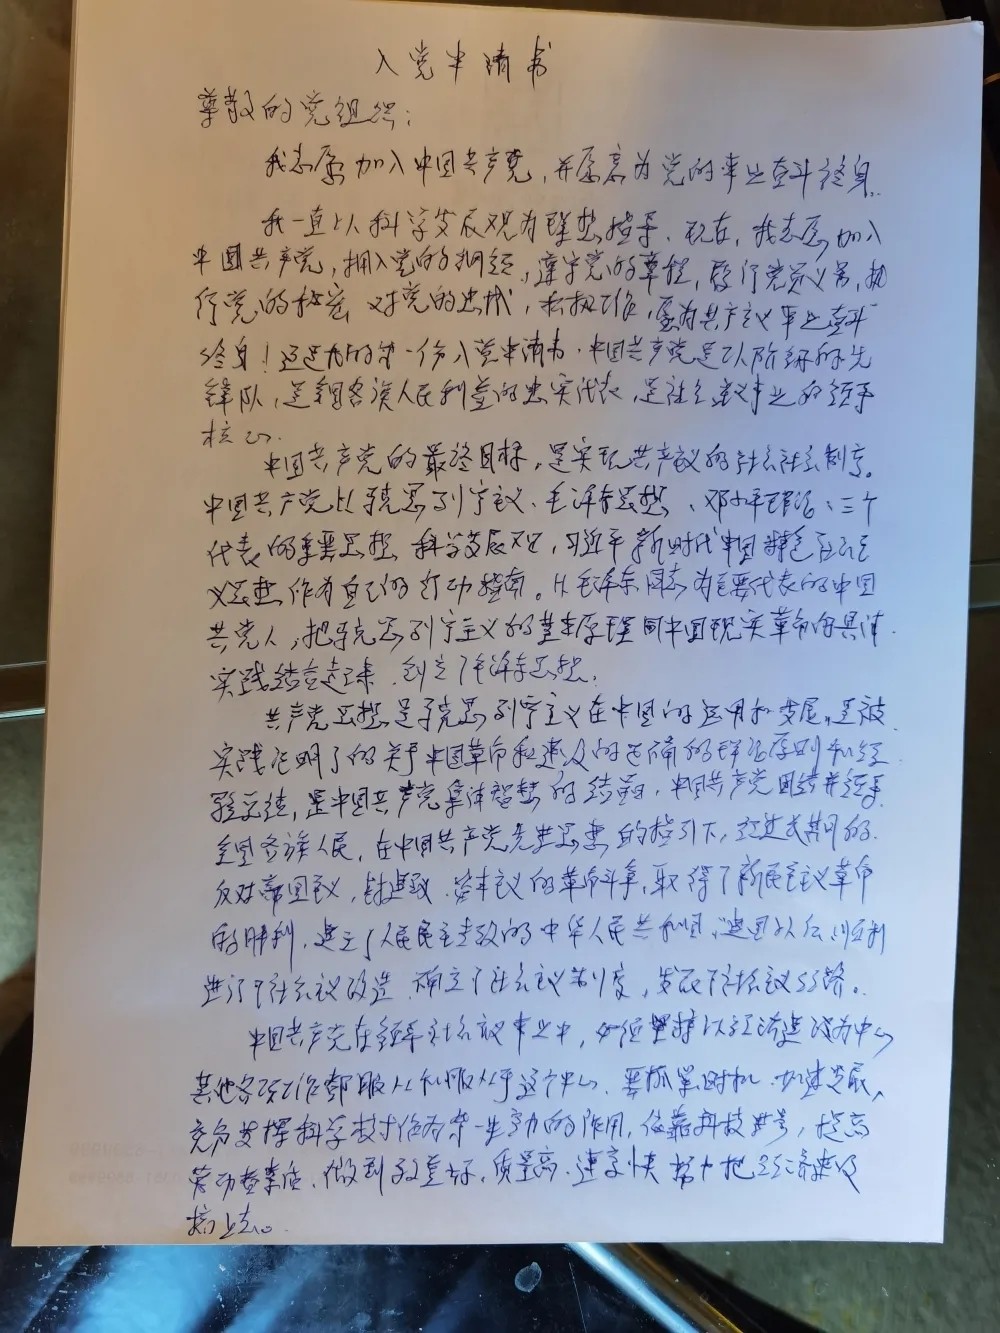 入党申请书
尊敬的党组织：
我志愿加入中国共产党，并愿意为党的事业奋斗终身.
我一直以科学发展观为理想指导.现在，我志愿加入
中国共产党，拥入党的纲领，遵守党的章程，履行党员义务，执
行党的秘密 对党的忠诚，积极工作，愿为共产主义事业奋斗
终身！这是我的第一份入党申请书.中国共产党是工人阶级的先
锋队，是全国各族人民利益的忠实代表，是社会主义事业的领导
核心.
中国共产党的最终目标，是实现共产主义的社会社会制度。
中国共产党以马克思列宁主义、毛泽东思想、邓小平理论、三个
代表的重要思想 科学发展观，习近平新时代中国特色社会主
义思想作为自己的行动指南。以毛泽东同志为主要代表的中国
共党人，把马克思列宁主义的基本原理同中国现实革命的具体
实践结合起来.创立了毛泽东思想.
共产党思想是马克思列宁主义在中国的运用和发展，是被
实践证明了的关于中国革命和建设的正确的理论原则和经
验总结，是中国共产党集体智慧的结晶.中国共产党团结并领导
全国各族人民，在中国共产党思想的指引下，经过长期的.
反对帝国主义，封建主义.资本主义的革命斗争，取得了新民主主义革命
的胜利，建立了人民民主专政的中华人民共和国，建国以后，顺利
进行了社会主义改造，确立了社会主义制度，发展了社会主义道路。
中国共产党在领导社会主义事业中，必须坚持以经济建设为中心
其他各项工作都服从和服从于这个中心.要抓紧时机.加速发展，
充分发挥科学技术作为第一生产力的作用，依靠科技进步，提高
劳动者素质、做到效益好，质量高.速度快 努力把经济建设
搞上去。